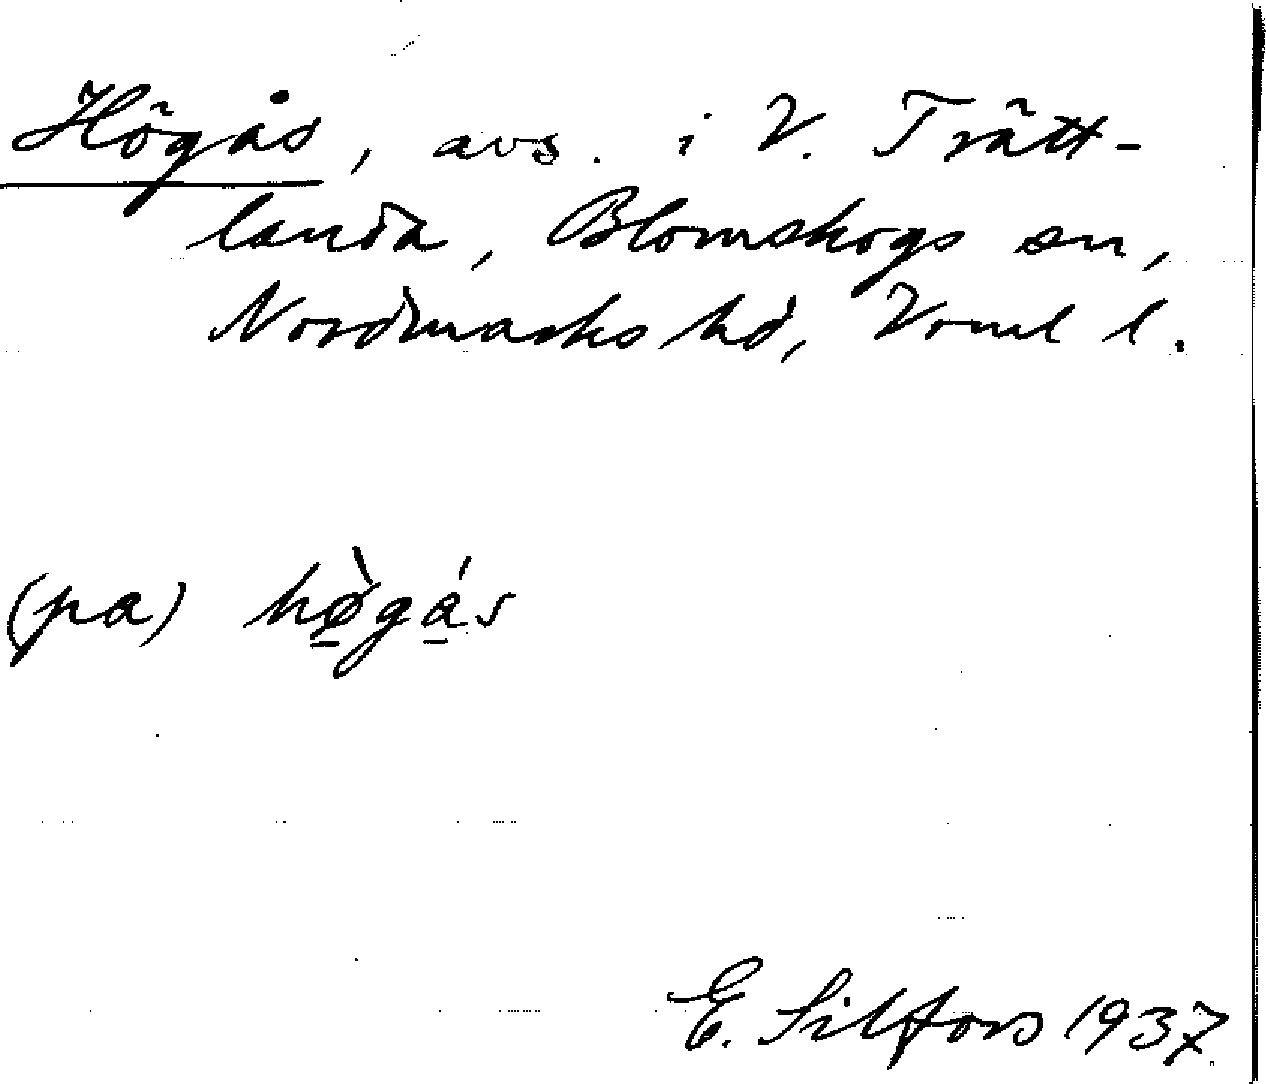 Högås, avs. i V. Trätt-
landa, Blomskogs sn,
Nordmarks hd, Vrml l.
(pa) hø̲̀gá̲s
E. Silfors 1937